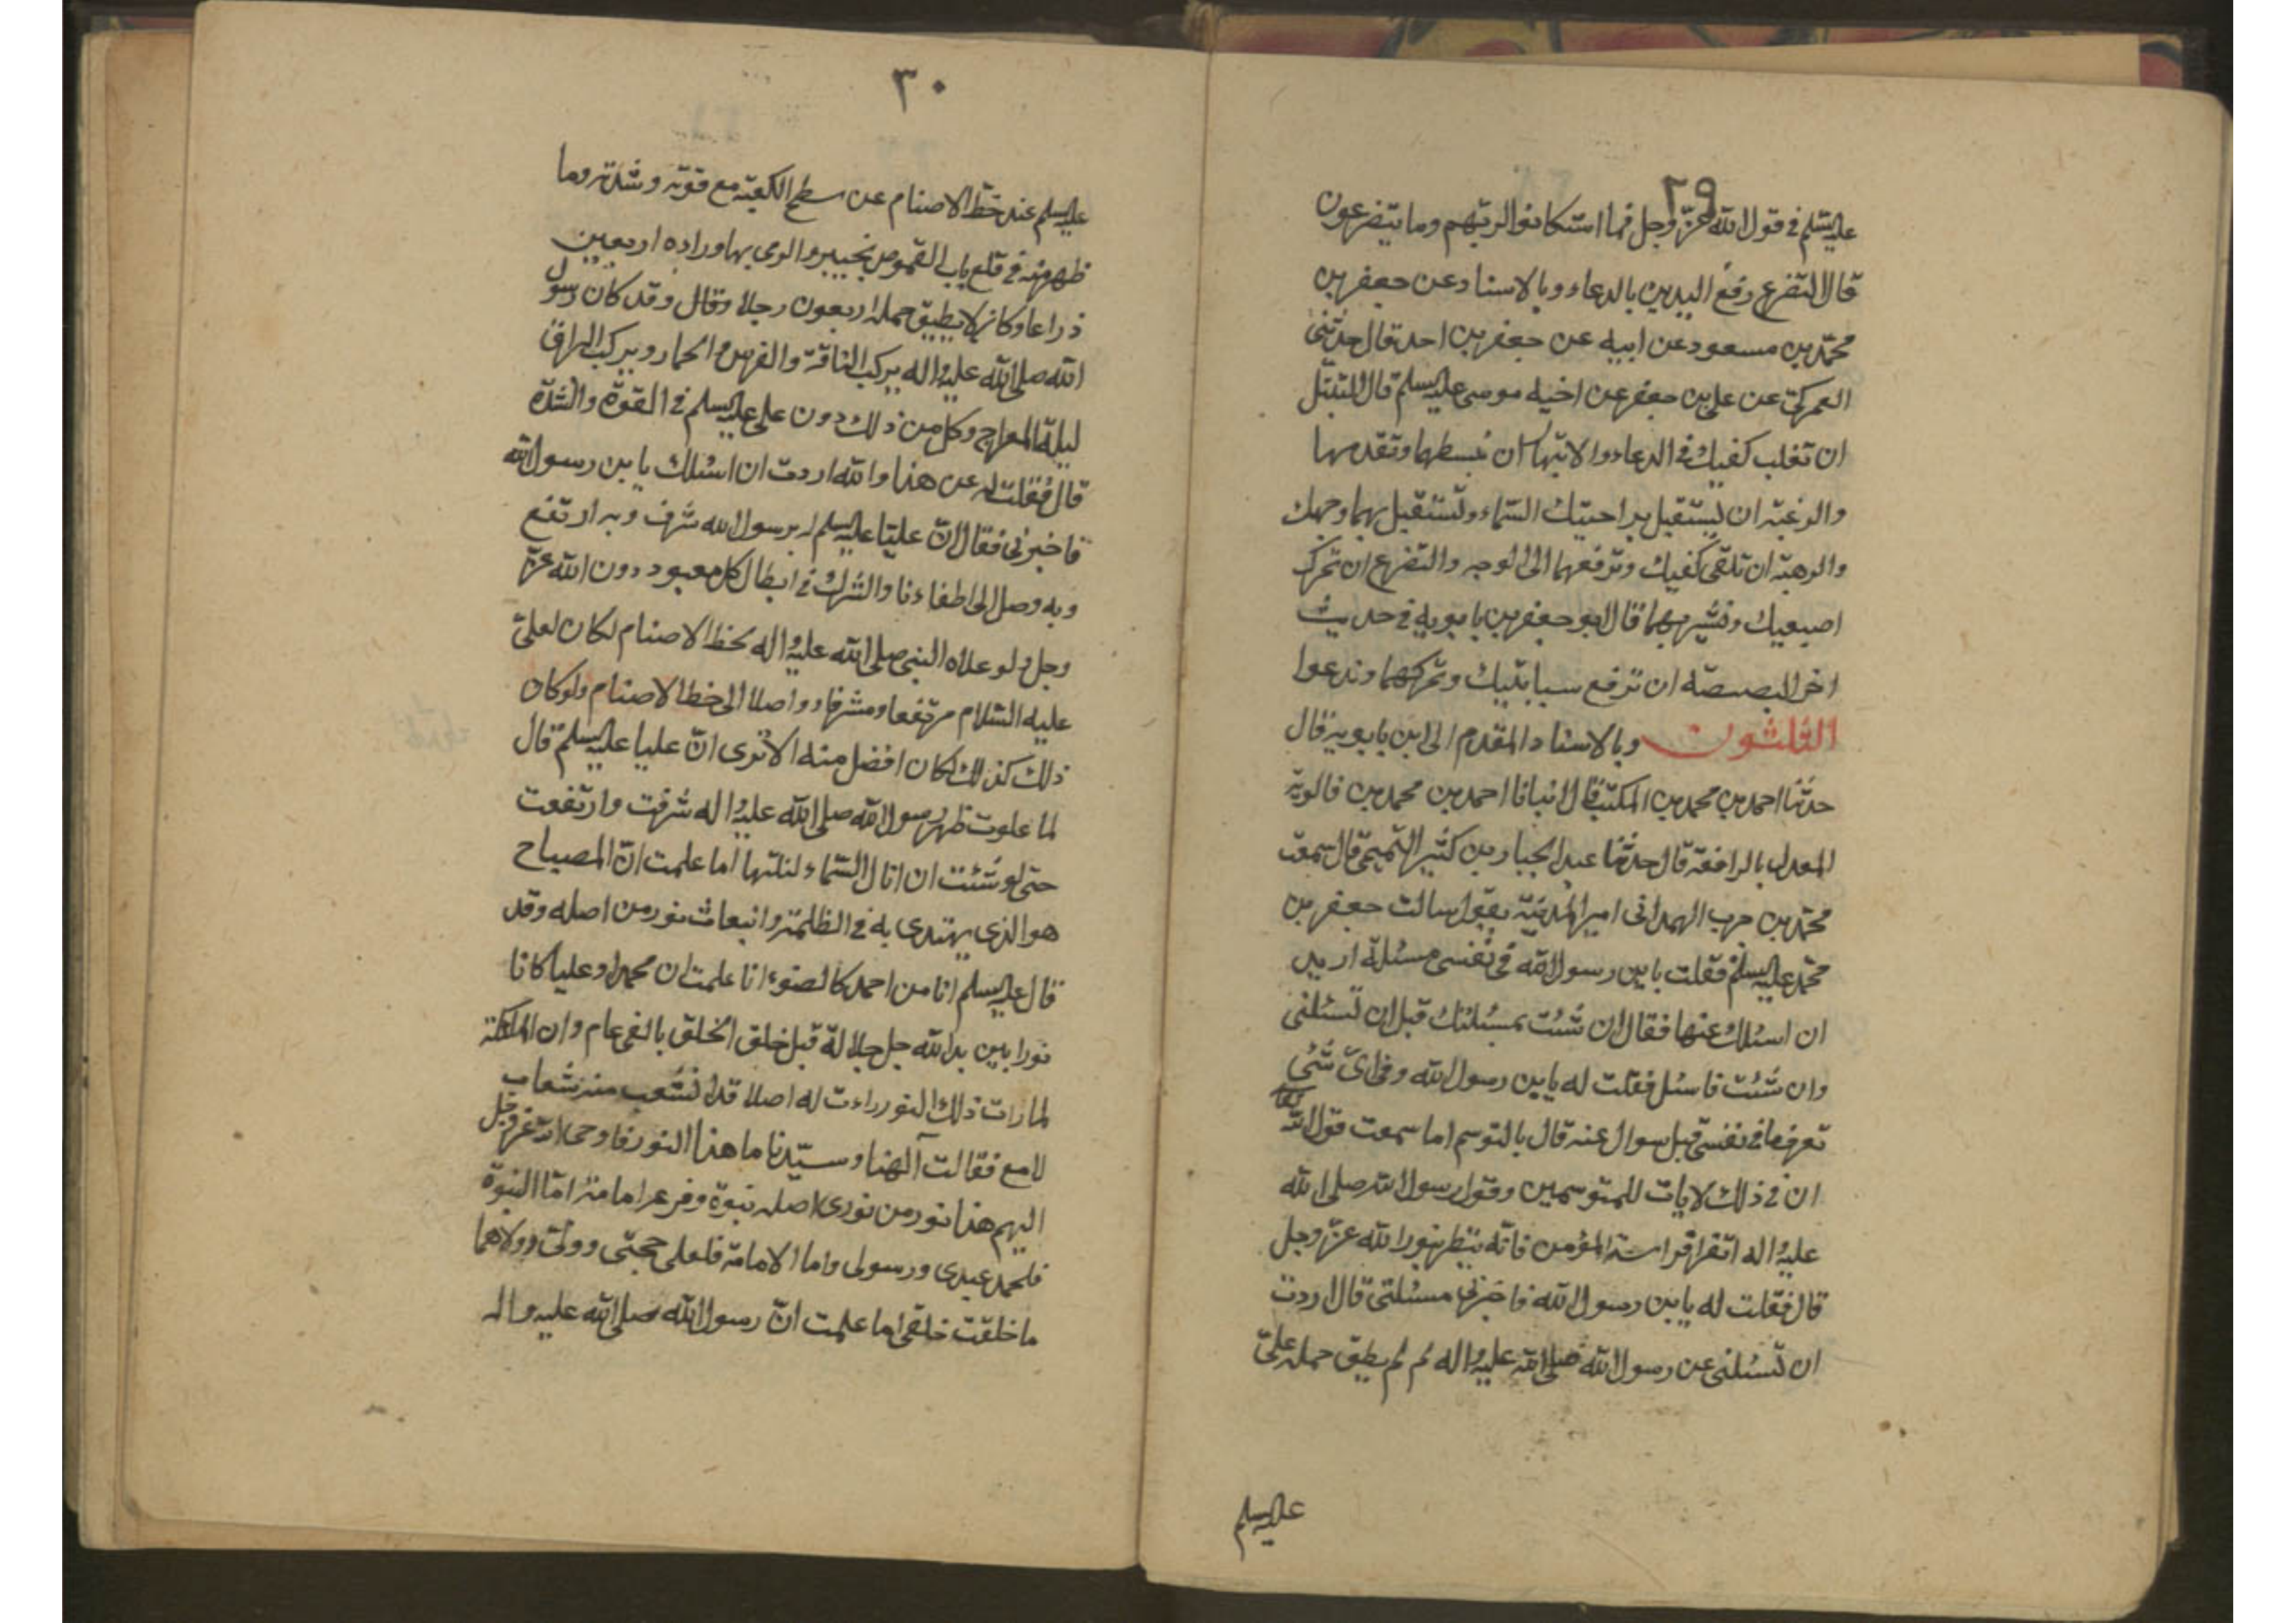 ٢٩
عليه السلم في قول الله عزّ وجل فما استكانوا لربّهم وما يتضرعون
قال التضرع رفع اليدين بالدعاء وبالاسناد عن جعفر بن
محمّد بن مسعود عن ابيه عن جعفر بن احمد قال حدّثني
العمركي عن علي بن جعفر عن اخيه موسى عليه السلم قال التبتّل
ان تقلب كفيك في الدعاء والابتهال ان تبسطهما وتقدمهما
والرغبة ان تستقبل براحتيك السّماء وتستقبل بهما وجهك
والرهبة ان تلقى كفيك وترفعهما الى الوجه والتضرع ان تحرك
اصبعيك وتشير بهما قال ابو جعفر بن بابويه في حديث
اخر البصبصة ان ترفع سبابتيك وتحركهما وتدعوا
الثلثون وبالاسناد المقدم الى ابن بابويه قال
حدّثنا احمد بن محمد بن المكتب قال انبانا احمد بن محمد بن قالويه
المعدل بالرافقة قال حدثنا عبد الجبار بن كثير التميمي قال سمعت
محمّد بن حرب الهمداني امير المدينة يقول سالت جعفر بن
محمّد عليه السلم فقلت يابن رسول الله في نفسي مسئلة اريد
ان اسئلك عنها فقال ان شئت بمسئلتك قبل ان تسئلني
وان شئت فاسئل فقلت له يابن رسول الله وفي اىّ شئ
تعرف ما في نفسي قبل سوال عنه قال بالتوسم اما سمعت قول الله تعا
ان في ذلك لايات للمتوسمين وقول رسول الله صلى الله
عليه واله اتقوا فراسة المؤمن فانّه ينظر بنور الله عزّ وجل
قال فقلت له يابن رسول الله فاخبرني مسئلتي قال اردت
ان تسئلني عن رسول الله صلى الله عليه واله لم لم يطق حمله علىّ
عليه السلم
٣٠
عليه السلم عند حطّ الاصنام عن سطح الكعبة مع قوته وشدته وما
ظهر منه في قلع باب القموص بخيبر والرمي بها وراءه اربعين
ذراعا وكان لا يطيق حمله اربعون رجلا وقال وقد كان رسول
الله صلى الله عليه واله يركب الناقة والفرس والحمار ويركب البراق
ليلة المعراج وكل من ذلك دون على عليه السلم في القوة والشدّة
قال فقلت له عن هذا والله اردت ان اسئلك يابن رسول الله
فاخبرني فقال انّ عليّا عليه السلم لرسول الله شرف وبه ارتفع
وبه وصل الى اطفاء نار الشرك في ابطال كل معبود دون الله عزّ
وجل ولو علاه النبي صلى الله عليه واله لحط الاصنام لكان لعليّ
عليه السّلام مرتفعا ومشرفا وواصلا الى حط الاصنام ولو كان
ذلك كذلك لكان افضل منه الا ترى انّ عليا عليه السلم قال
لما علوت ظهر رسول الله صلى الله عليه واله شرفت وارتفعت
حتى لو شئت ان انال السّماء لنلتها اما علمت انّ المصباح
هو الذي يهتدى به في الظلمة وانبعاث نور من اصله وقد
قال عليه السلم انا من احمد كالضوء انا علمت ان محمدا وعليا كانا
نورا بين يدي الله جل جلاله قبل خلق الخلق بالفي عام وان الملائكة
لما رات ذلك النور رات له اصلا قد انشعب منه شعاب
لامع فقالت آلهنا وسيّدنا ما هذا النور فاوحى الله عزّ وجل
اليهم هذا نور من نوري اصله نبوة وفرعه امامة امّا النبوة
فلمحمد عبدي ورسولي واما الامامة فلعلى حجتى ووليّ ولولاهما
ما خلقت خلقى اما علمت انّ رسول الله صلى الله عليه واله